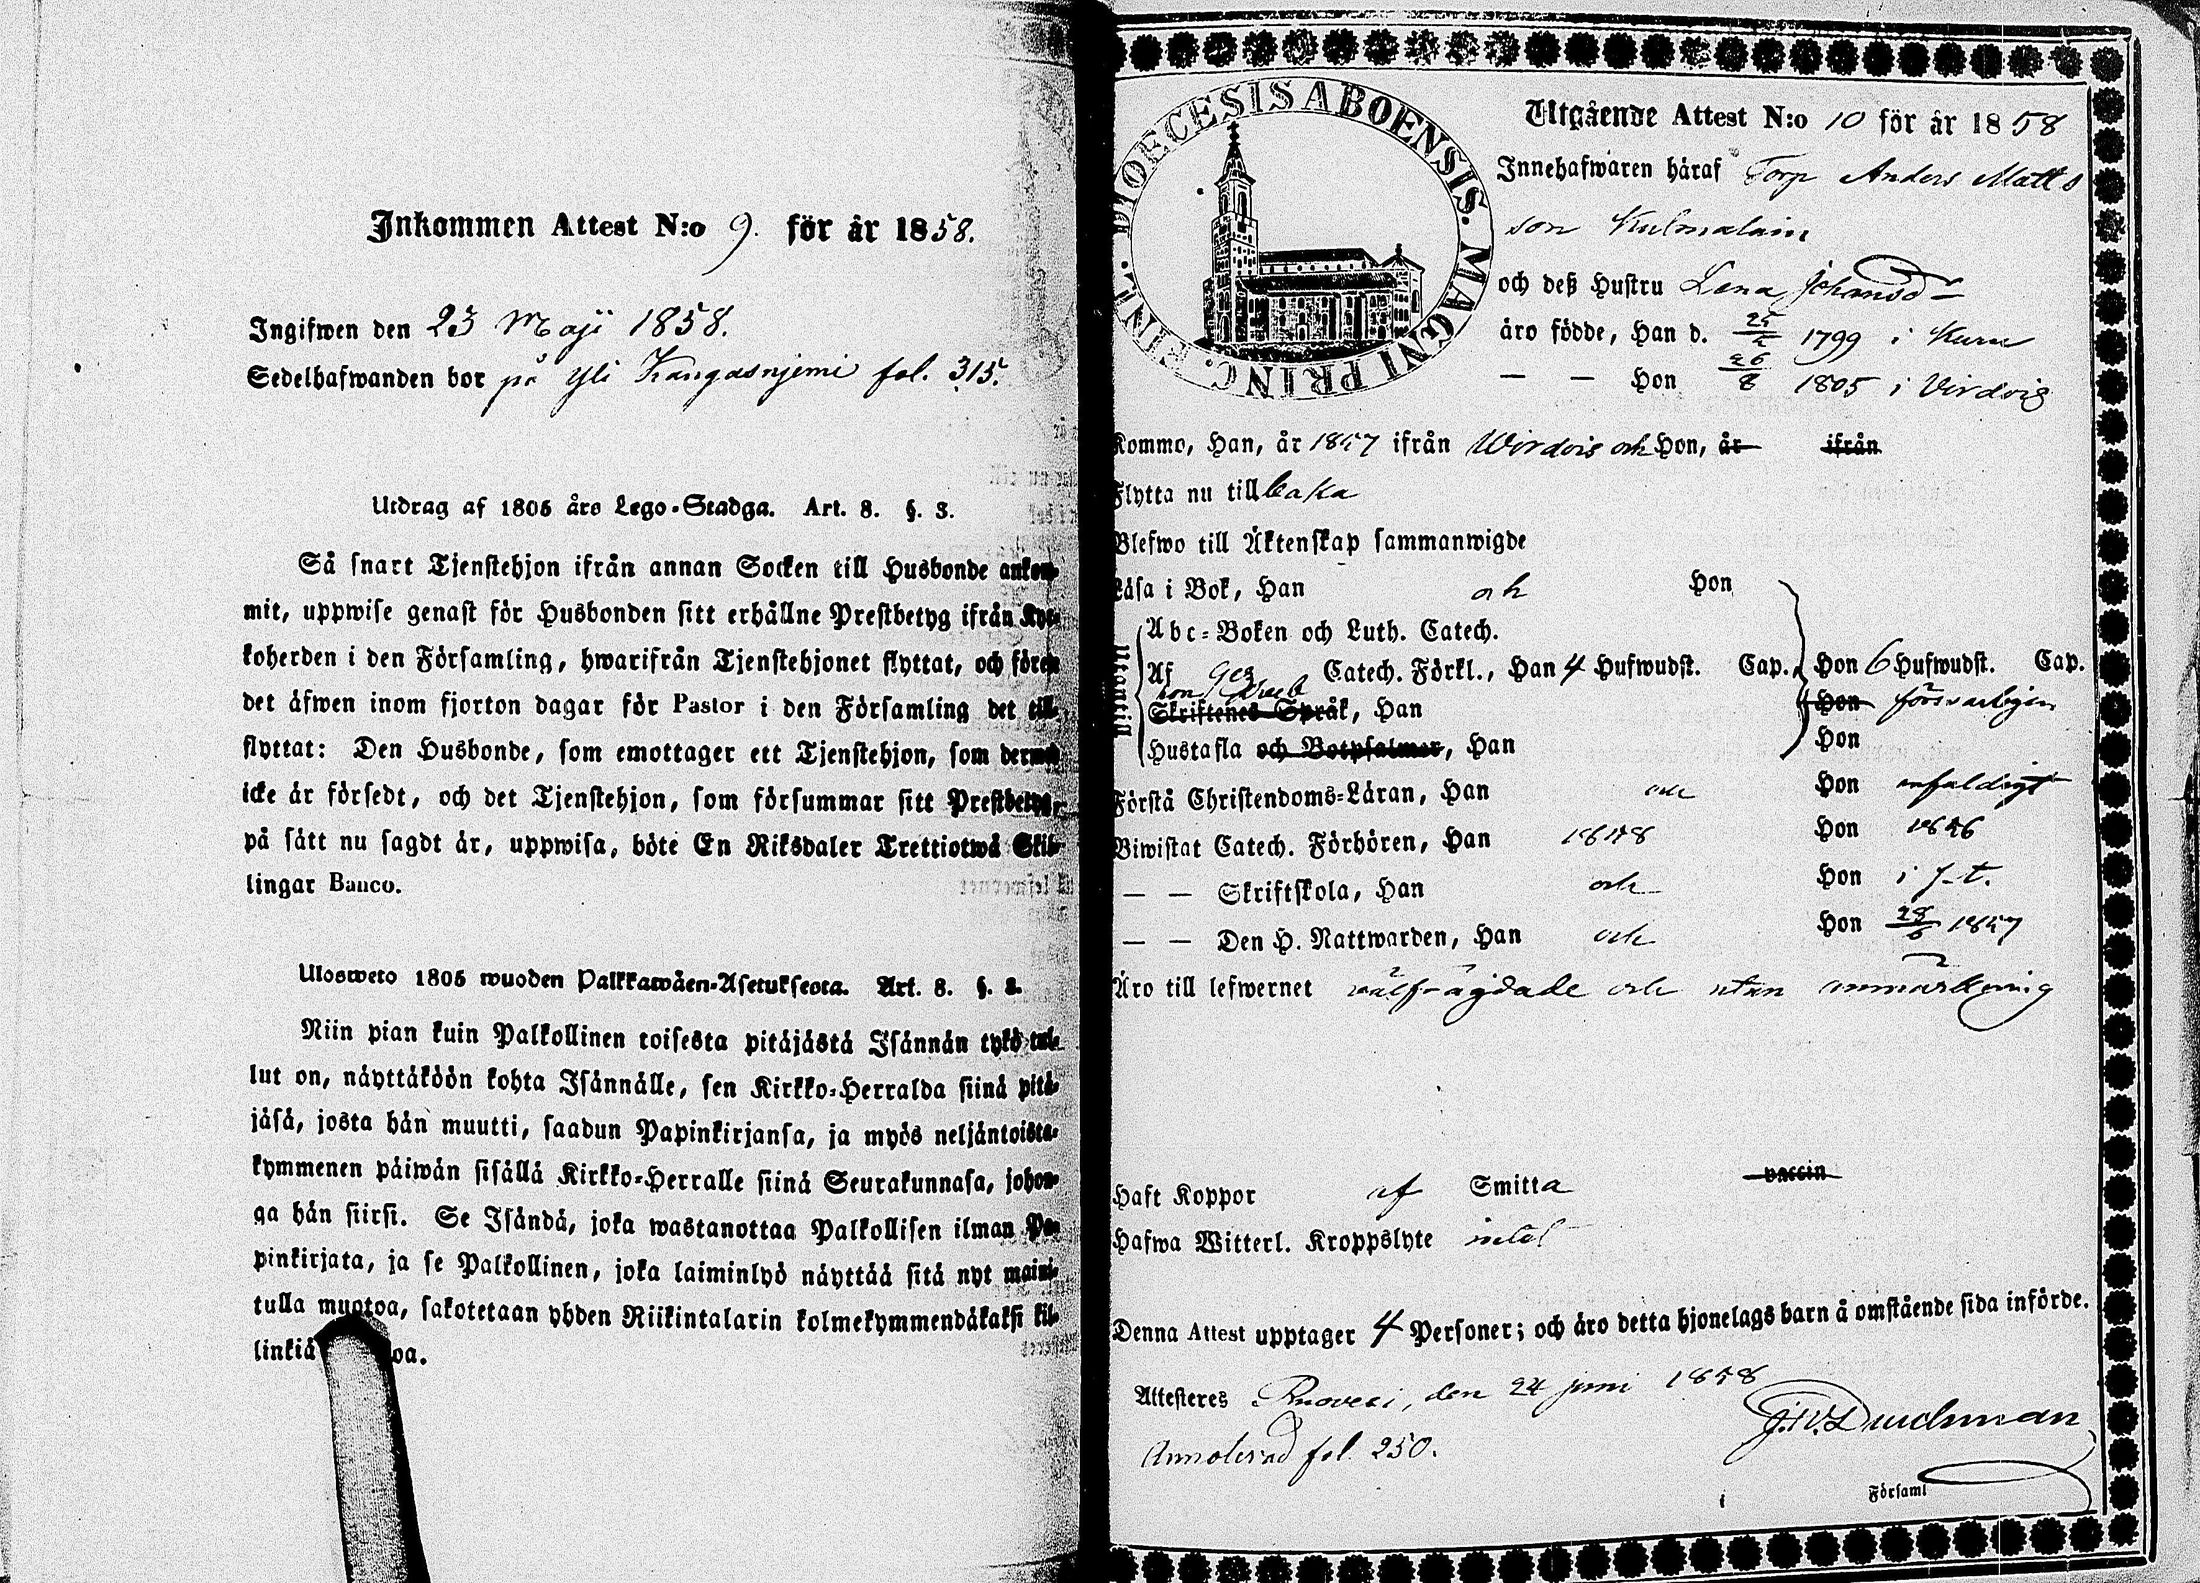 Inkommen Attest N:o 9. för år 1858.
Ingifwen den 23 Maji 1858.
Sedelhafwanden bor på Yli Kangasnjemi fol. 315.
Utdrag af 1805 års Lego-Stadga. Art. 8. §. 3.
Så snart Tjenstehjon ifrån annan Socken till Husbonde ankom-
mit, uppwise genast för Husbonden sitt erhållne Prestbetyg ifrån Kyr-
koherden i den Församling, hwarifrån Tjenstehjonet flyttat, och förete
det äfwen inom fjorton dagar för Pastor i den Församling det till-
flyttat: Den Husbonde, som emottager ett Tjenstehjon, som dermed
icke är försedt, och det Tjenstehjon, som försummar sitt Prestbetyg,
på sätt nu sagdt är, uppwisa, böte En Riksdaler Trettiotwå Skil-
lingar Banco.
Ulosweto 1805 wuoden Palkkawäen-Asetuksesta. Art. 8. §. 3.
Niin pian kuin Palkollinen toisesta pitäjästä Isännän tykö tul-
lut on, näyttäköön kohta Isännälle, sen Kirkko-Herralda siinä pitä-
jäsä, josta hän muutti, saadun Papinkirjansa, ja myös neljäntoista-
kymmenen päiwän sisällä Kirkko-Herralle siinä Seurakunnasa, johon-
ga hän siirsi. Se Isändä, joka wastanottaa Palkollisen ilman Pa-
pinkirjata, ja se Palkollinen, joka laiminlyö näyttää sitä nyt maini-
tulla muotoa, sakotetaan yhden Riikintalarin kolmekymmendäkaksi kil-
linkiä oa.
DIOECESIS ABOENSIS. MAGNI PRINC. FINL.
Utgående Attest N:o 10 för år 1858
Innehafwaren häraf Torp Anders Matts
son Kulmalain
och deß Hustru Lena Johansd
äro födde, Han d. 1799 i Kuru
— — Hon 26/8 1805 i Virdois
Kommo, Han, år 1857 ifrån Wirdois och Hon, år ifrån
Flytta nu tillbaka
Blefwo till Äktenskap sammanwigde
Läsa i Bok, Han och Hon
Utantill
Abc-Boken och Luth. Catech.
Af Catech. Förkl., Han 4 Hufwudst. Cap., Hon 6 Hufwudst. Cap.
Skriftenes Språk, Han Hon försvarligen
Hustafla och Botpsalmer, Han Hon
Förstå Christendoms-Läran, Han och Hon enfaldigt
Biwistat Catech. Förhören, Han Hon
— — Skriftskola, Han och Hon
— — Den H. Nattwarden, Han och Hon 1857
Äro till lefwernet välfrägdade och utan anmärkning
Haft Koppor af Smitta vaccin
Hafwa Witterl. Kroppslyte intet
Denna Attest upptager 4 Personer; och äro detta hjonelags barn å omstående sida införde.
Attesteres Ruovesi, den 24 juni 1858
Annoterad fol. 250.
Församl